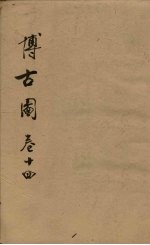 博古圖卷十四